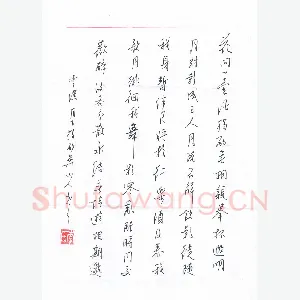 花间一壶酒独酌无相亲举杯邀明
月对影成三人月既不解饮影徒随
我身暂伴月将影行乐须及春我
歌月徘徊我舞影零乱醒时同交
欢醉后各分散永结无情游相期邈
月下独酌
Shufawang.CN